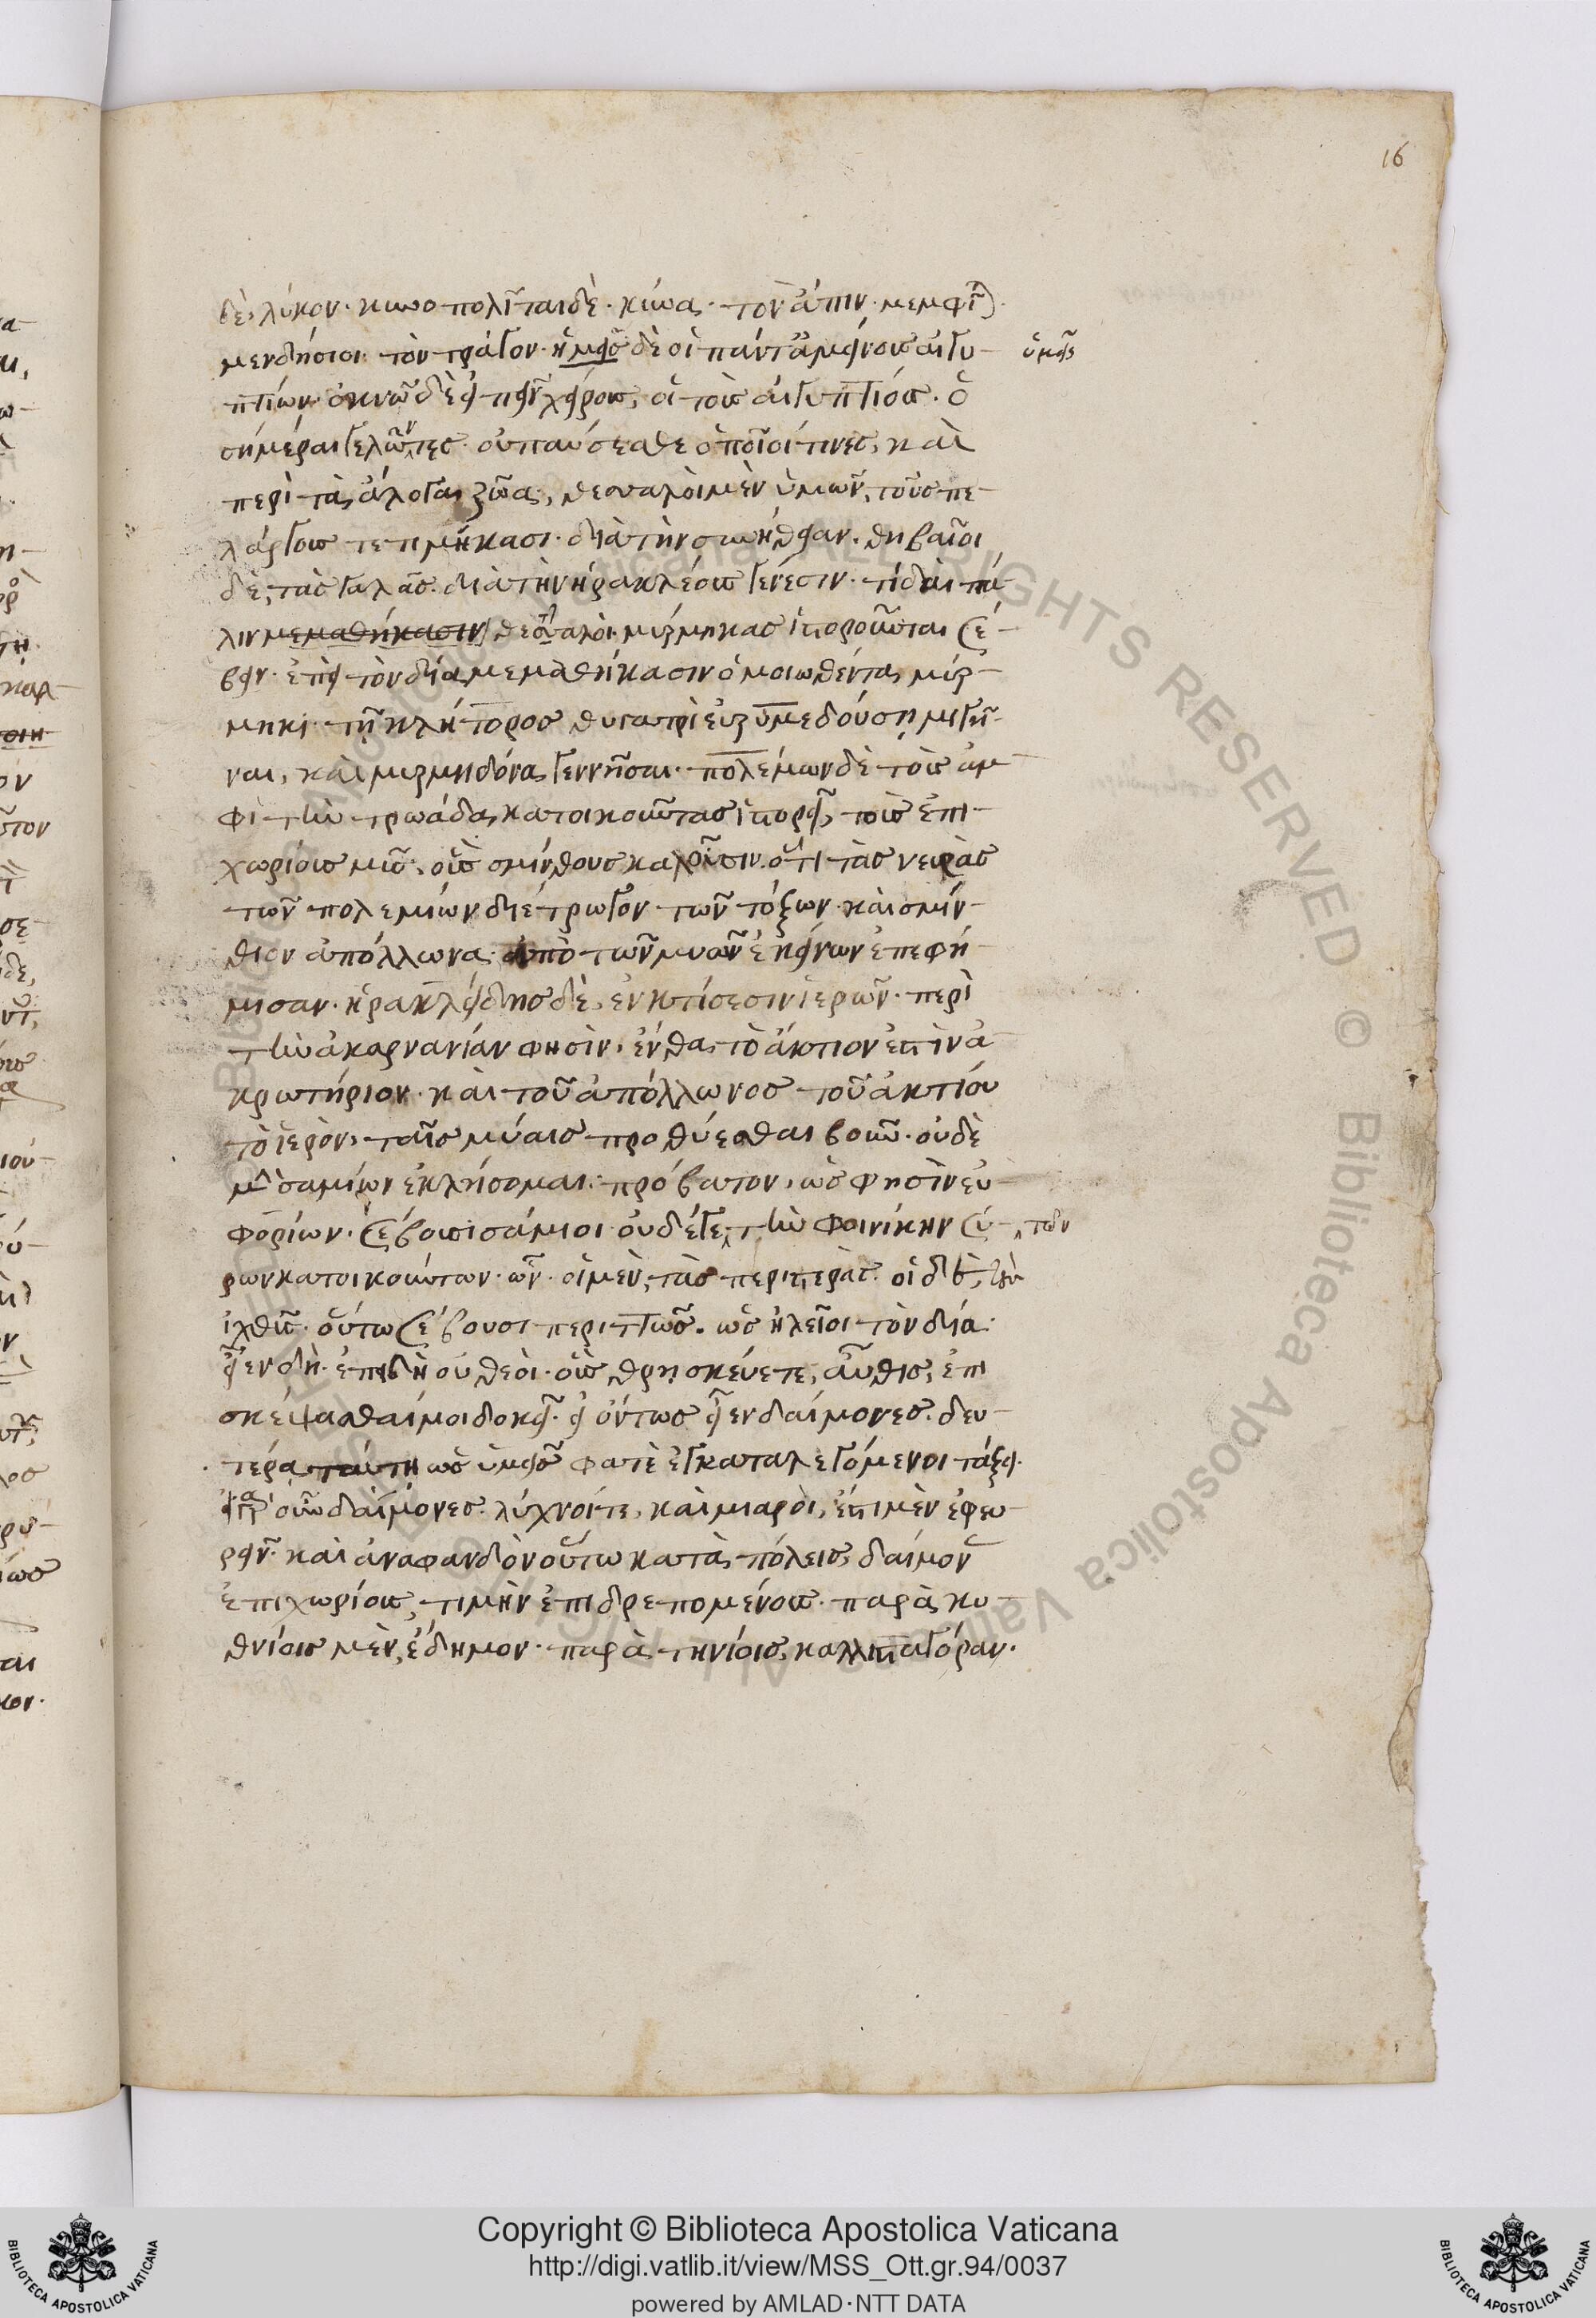 16
δὲ, λύκον· κυνοπολῖται δὲ· κύνα· τὸν ἄπιν· μεμφῖται·
μενδήσιοι· τὸν τράγον· ἡμεῖς δὲ οἱ πάντ᾽ ἀμείνους αἰγυ-
ὑμεῖς
πτίων· ὀκνῶ δὲ εἰπεῖν χείρους, οἳ τοὺς αἰγυπτίους· ὁ
σημέραι γελῶντες· οὐ παύσεσθε ὁποῖοί τινες, καὶ
περὶ τὰ ἄλογα ζῶα, θεσσαλοὶ μὲν ὑμῶν, τοὺς πε-
λάργους τετιμήκασι· διὰ τὴν συνήθειαν. θηβαῖοι
δὲ, τὰς γαλᾶς· διὰ τὴν ἡρακλέους γένεσιν· τί δαὶ πά-
λιν μεμαθήκασιν θεσσαλοὶ· μύρμηκας ἱστοροῦνται σέ-
βειν· ἐπεὶ τὸν δία μεμαθήκασιν ὁμοιωθέντα μύρ-
μηκι· τῆ κλήτορος θυγατρὶ εὐρυμεδούση μιγῆ-
ναι, καὶ μυρμηδόνα γεννῆσαι· πολέμων δὲ τοὺς ἀμ-
φὶ τὴν τρωάδα κατοικοῦντας ἱστορεῖ, τοὺς ἐπι-
χωρίους μῦς, οὓς σμίνθους καλοῦσιν. ὅτι τὰς νευρὰς
τῶν πολεμίων διέτρωγον τῶν τόξων· καὶ σμίν-
θιον ἀπόλλωνα· ἀπὸ τῶν μυῶν ἐκείνων ἐπεφή-
μισαν· ἡρακλείδης δὲ, ἐν κτίσεσιν ἱερῶν· περὶ
τὴν ἀκαρνανίαν φησὶν, ἔνθα τὸ ἄκτιον ἐστὶν ἀ-
κρωτήριον· καὶ τοῦ ἀπόλλωνος τοῦ ἀκτίου
τὸ ἱερὸν, ταῖς μύαις προθύεσθαι βοῦν· οὐδὲ
μὴν σαμίων ἐκλήσομαι· πρόβατον, ὡς φησὶν εὐ-
φορίων· σέβουσι σάμιοι· οὐδέ γε, τὴν φοινίκην σύ-
, τῶν
ρων κατοικούντων· ὧν· οἱ μὲν, τὰς περιστερὰς· οἱ δὲ, τοὺς
ἰχθῦς· οὕτω σέβουσι περιττῶς. ὡς ἠλεῖοι τὸν δία·
εἶεν δὴ· ἐπειδὴ οὐ θεοὶ· οὓς θρησκεύετε, αὖθις, ἐπι
σκέψασθαί μοι δοκεῖ· εἰ ὄντως εἶεν δαίμονες· δευ-
τέρα ταύτη ὡς ὑμεῖς φατὲ ἐγκαταλεγόμενοι τάξει·
εἰ γὰρ οὖν δαίμονες· λύχνοί τε, καὶ μιαροὶ, ἔστι μὲν ἐφευ-
ρεῖν· καὶ ἀναφανδὸν οὕτω κατὰ πόλεις, δαίμονας
ἐπιχωρίους, τιμὴν ἐπιδρεπομένους· παρὰ κυ-
θνίοις μὲν, ἔδημον· παρὰ τηνίοις, καλλισταγόραν·
Copyright © Biblioteca Apostolica Vaticana
http://digi.vatlib.it/view/MSS_Ott.gr.94/0037
powered by AMLAD·NTT DATA